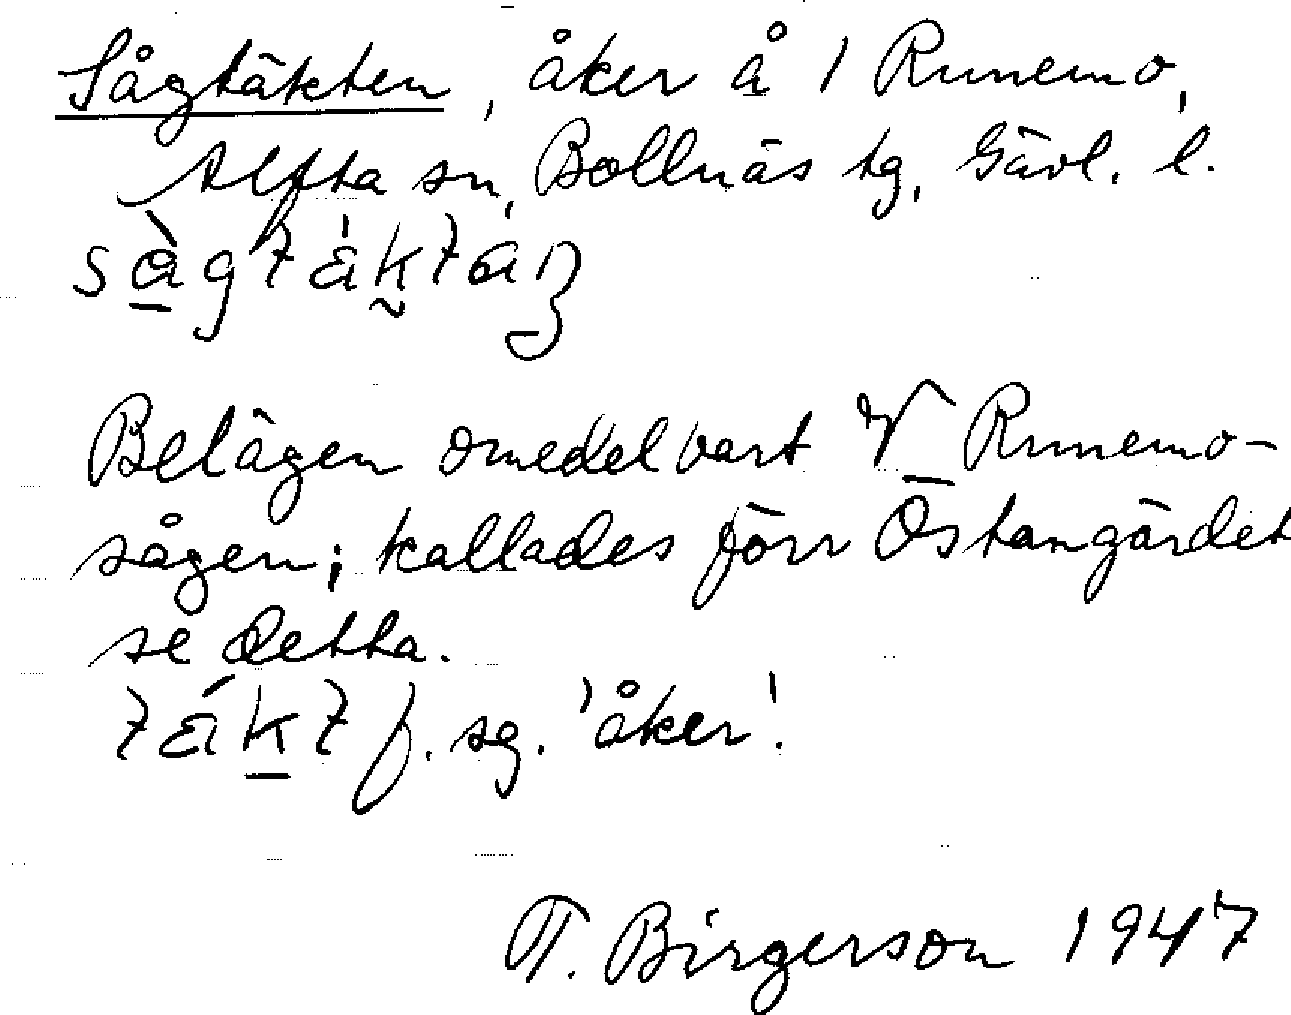 Sågtäkten, åker å 1 Runemo,
Alfta sn, Bollnäs tg, Gävl. l.
Belägen omedelbart V Runemo-
sågen; kallades förr Östangärdet
se detta.
f. sg. 'åker'.
T. Birgerson 1947